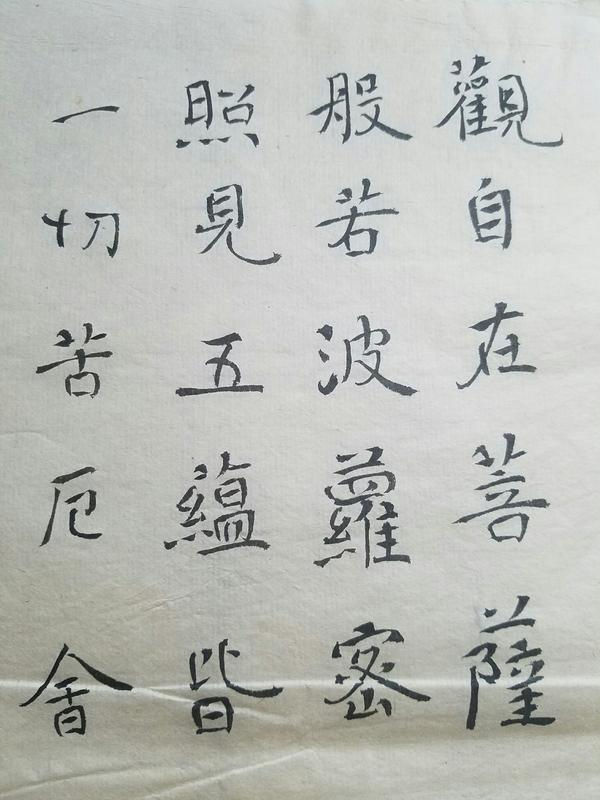 觀自在菩薩
般若波蘿密
照見五蘊皆
一切苦厄舍